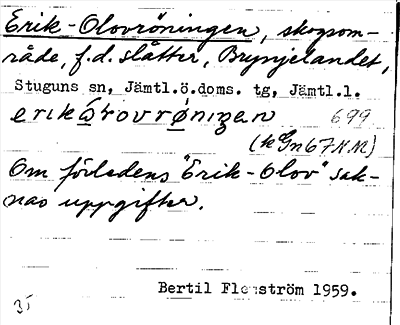 Erik-Olovröningen, skogsom-
råde, f.d. slåtter, Brynjelandet,
Stuguns sn, Jämtl.ö.doms. tg, Jämtl.l.
699
Om förledens "Erik-Olov" sak-
nas uppgifter.
Bertil Flemström 1959.
35